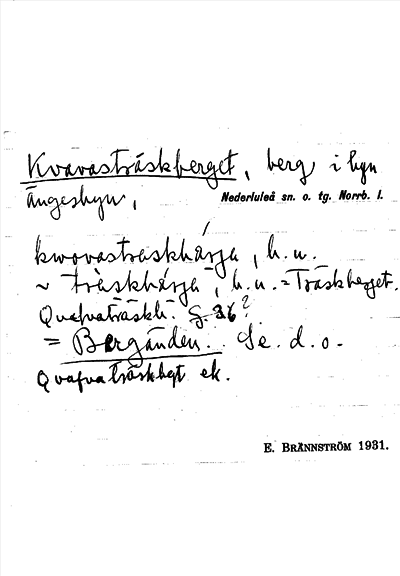 Kvavasträskberget, berg i byn
ängesbyn,
Nederluleå sn. o. tg. Norrb. l.
kwovastraskbärja, b.u.
~ träskbärja, b.u. = Träskberget.
Qvafvaträskb. G. 36?
= Bergänden. Se. d. o.
Qvafvaträskbgt ek.
E. BRÄNNSTRÖM 1931.